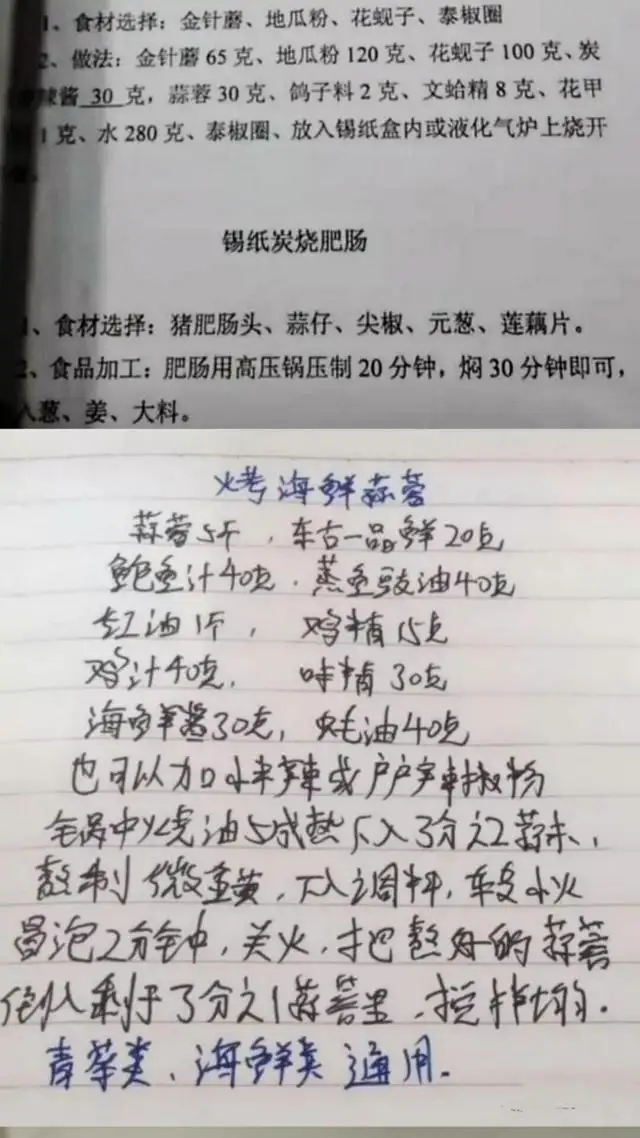 1、食材选择：金针蘑、地瓜粉、花蚬子、泰椒圈
2、做法：金针蘑 65 克、地瓜粉 120 克、花蚬子 100 克、炭
辣酱 30 克，蒜蓉 30 克、鸽子料 2 克、文蛤精 8 克、花甲
1 克、水 280 克、泰椒圈、放入锡纸盒内或液化气炉上烧开
锡纸炭烧肥肠
1、食材选择：猪肥肠头、蒜仔、尖椒、元葱、莲藕片。
2、食品加工：肥肠用高压锅压制 20 分钟，焖 30 分钟即可，
入葱、姜、大料。
烤海鲜蒜蓉
蒜蓉5斤，东古一品鲜20克
鲍鱼汁40克，蒸鱼豉油40克
红油1斤，鸡精15克
鸡汁40克，味精30克
海鲜酱30克，蚝油40克
也可以加小米辣或户户辣椒粉
锅中火烧油5成热下入3分之2蒜末，
熬制微金黄，下入调料，转小火
冒泡2分钟，关火，把熬好的蒜蓉
倒入剩于3分之1蒜蓉里，搅拌均匀．
青菜类、海鲜类通用．